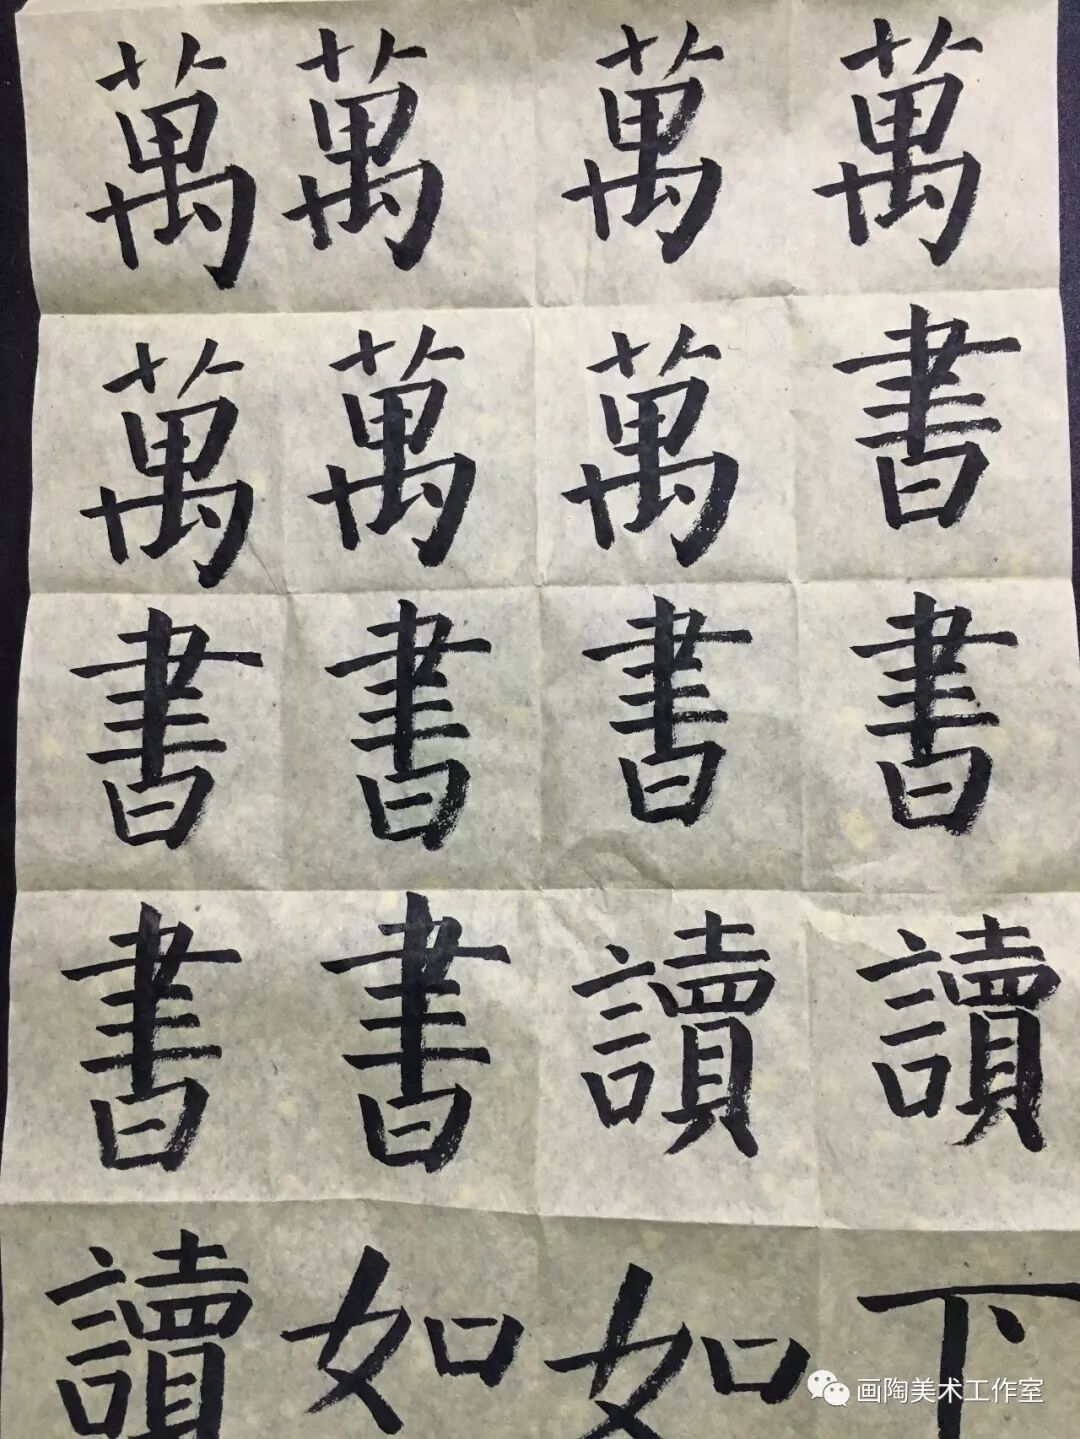 萬萬萬萬
萬萬萬書
書書書書
書書讀讀
讀如如下
画陶美术工作室